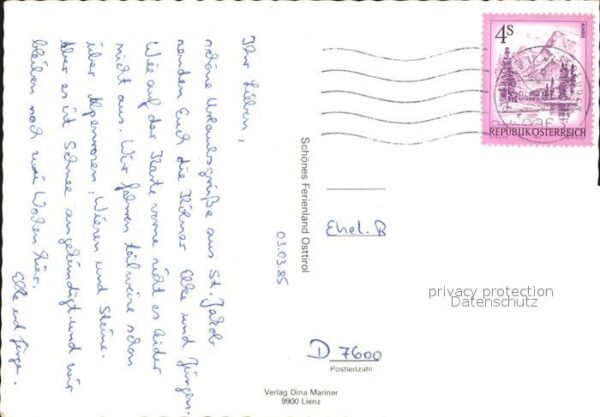 Ihr Lieben,
schöne Urlaubsgrüße aus St. Jakob
senden Euch die Kölner Elke und Jürgen.
Wie auf der Karte vorne sieht es leider
nicht aus. Wir fahren teilweise schon
über Alpenrosen, Wiesen und Steine.
Aber es ist Schnee angekündigt und wir
bleiben noch zwei Wochen hier.
Elke und Jürgen
Schönes Ferienland Osttirol
03.03.85
4S
ALMSEE
REPUBLIK ÖSTERREICH
Ehel. R
privacy protection
Datenschutz
D 7600
Postleitzahl
Verlag Dina Mariner
9900 Lienz